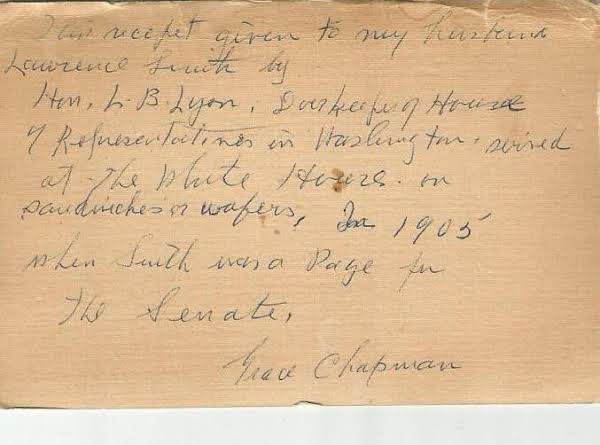 This receipt given to my husband
Lawrence Smith by
Hon. L. B. Lyon, Doorkeeper of House
of Representatives in Washington. served
at The White House on
sandwiches or wafers, In 1905
when Smith was a Page for
The Senate,
Grace Chapman